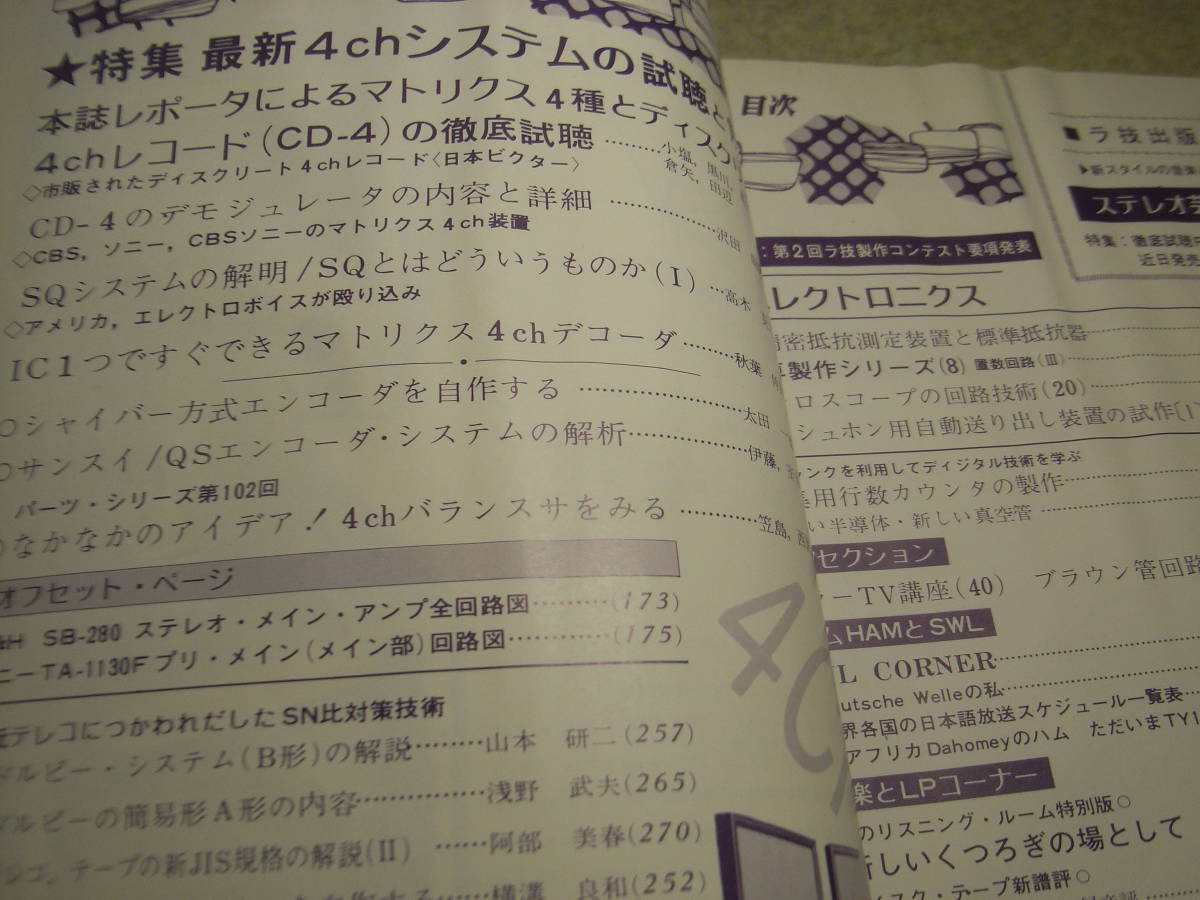 ★特集 最新4chシステムの試聴と
本誌レポータによるマトリクス4種とディスク
4chレコード(CD-4)の徹底試聴………小塩,黒川,
倉矢,田辺
◇市販されたディスクリート4chレコード〈日本ビクター〉
CD-4のデモジュレータの内容と詳細………沢田
◇CBS,ソニー,CBSソニーのマトリクス4ch装置
SQシステムの解明/SQとはどういうものか(I)…高木
◇アメリカ,エレクトロボイスが殴り込み
IC1つですぐできるマトリクス4chデコーダ………秋葉
○シャイバー方式エンコーダを自作する………太田
○サンスイ/QSエンコーダ・システムの解析………伊藤,
パーツ・シリーズ第102回
○なかなかのアイデア!4chバランスサをみる………笠島,
オフセット・ページ
SB-280 ステレオ・メイン・アンプ全回路図………(173)
ニーTA-1130Fプリ・メイン(メイン部)回路図………(175)
テレコにつかわれだしたSN比対策技術
ドルビー・システム(B形)の解説………山本 研二(257)
ドルビーの簡易形A形の内容………浅野 武夫(265)
テープの新JIS規格の解説(II)……阿部 美春(270)
横溝 良和(252)
4c
目次
:第2回ラ技製作コンテスト要項発表
レクトロニクス
密抵抗測定装置と標準抵抗器
製作シリーズ(8) 置数回路(III)
ロスコープの回路技術(20)
シュホン用自動送り出し装置の試作〔I〕
ンクを利用してディジタル技術を学ぶ
用行数カウンタの製作
い半導体・新しい真空管
セクション
ーTV講座(40) ブラウン管回路
ムHAMとSWL
L CORNER
utsche Welleの私
界各国の日本語放送スケジュール一覧表
アフリカDahomeyのハム ただいまTY1
楽とLPコーナー
のリスニング・ルーム特別版○
新しいくつろぎの場として
ィスク・テープ新譜評○
■ラ技出版
▶新スタイルの音楽
ステレオ
特集:徹底試聴
近日発売